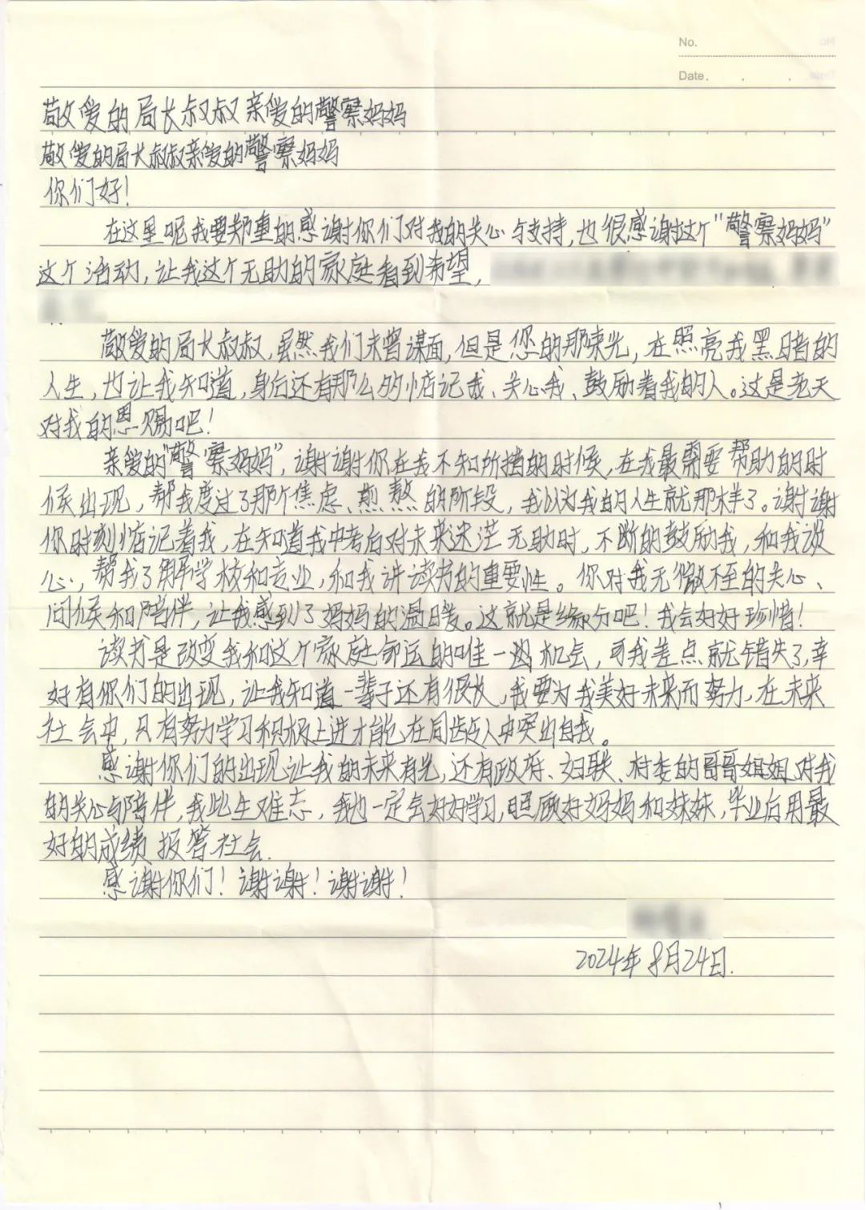 No.
Date.
敬爱的局长叔叔亲爱的警察妈妈
敬爱的局长叔叔亲爱的警察妈妈
你们好!
在这里呢我要郑重的感谢你们对我的关心与支持,也很感谢这个"警察妈妈"
这个活动,让我这个无助的家庭看到希望,
敬爱的局长叔叔,虽然我们未曾谋面,但是您的那束光,在照亮我黑暗的
人生,也让我知道,身后还有那么多惦记我、关心我、鼓励着我的人。这是老天
对我的恩赐吧!
亲爱的"警察妈妈",谢谢你在我不知所措的时候,在我最需要帮助的时
候出现,帮我度过了那个焦虑、煎熬的阶段,我以为我的人生就那样了。谢谢
你时刻惦记着我,在知道我中考后对未来迷茫无助时,不断的鼓励我,和我谈
心,帮我了解学校和专业,和我讲读书的重要性。你对我无微不至的关心、
问候和陪伴,让我感到了妈妈的温暖。这就是缘分吧!我会好好珍惜!
读书是改变我和这个家庭命运的唯一机会,可我差点就错失了,幸
好有你们的出现,让我知道一辈子还有很长,我要为我美好未来而努力,在未来
社会中,只有努力学习积极上进才能在同龄人中突出自我。
感谢你们的出现让我的未来有光,还有政府、妇联、村委的哥哥姐姐对我
的关心与陪伴,我此生难忘,我也一定会好好学习,照顾好妈妈和妹妹,毕业后用最
好的成绩报答社会.
感谢你们!谢谢!谢谢!
2024年8月24日.